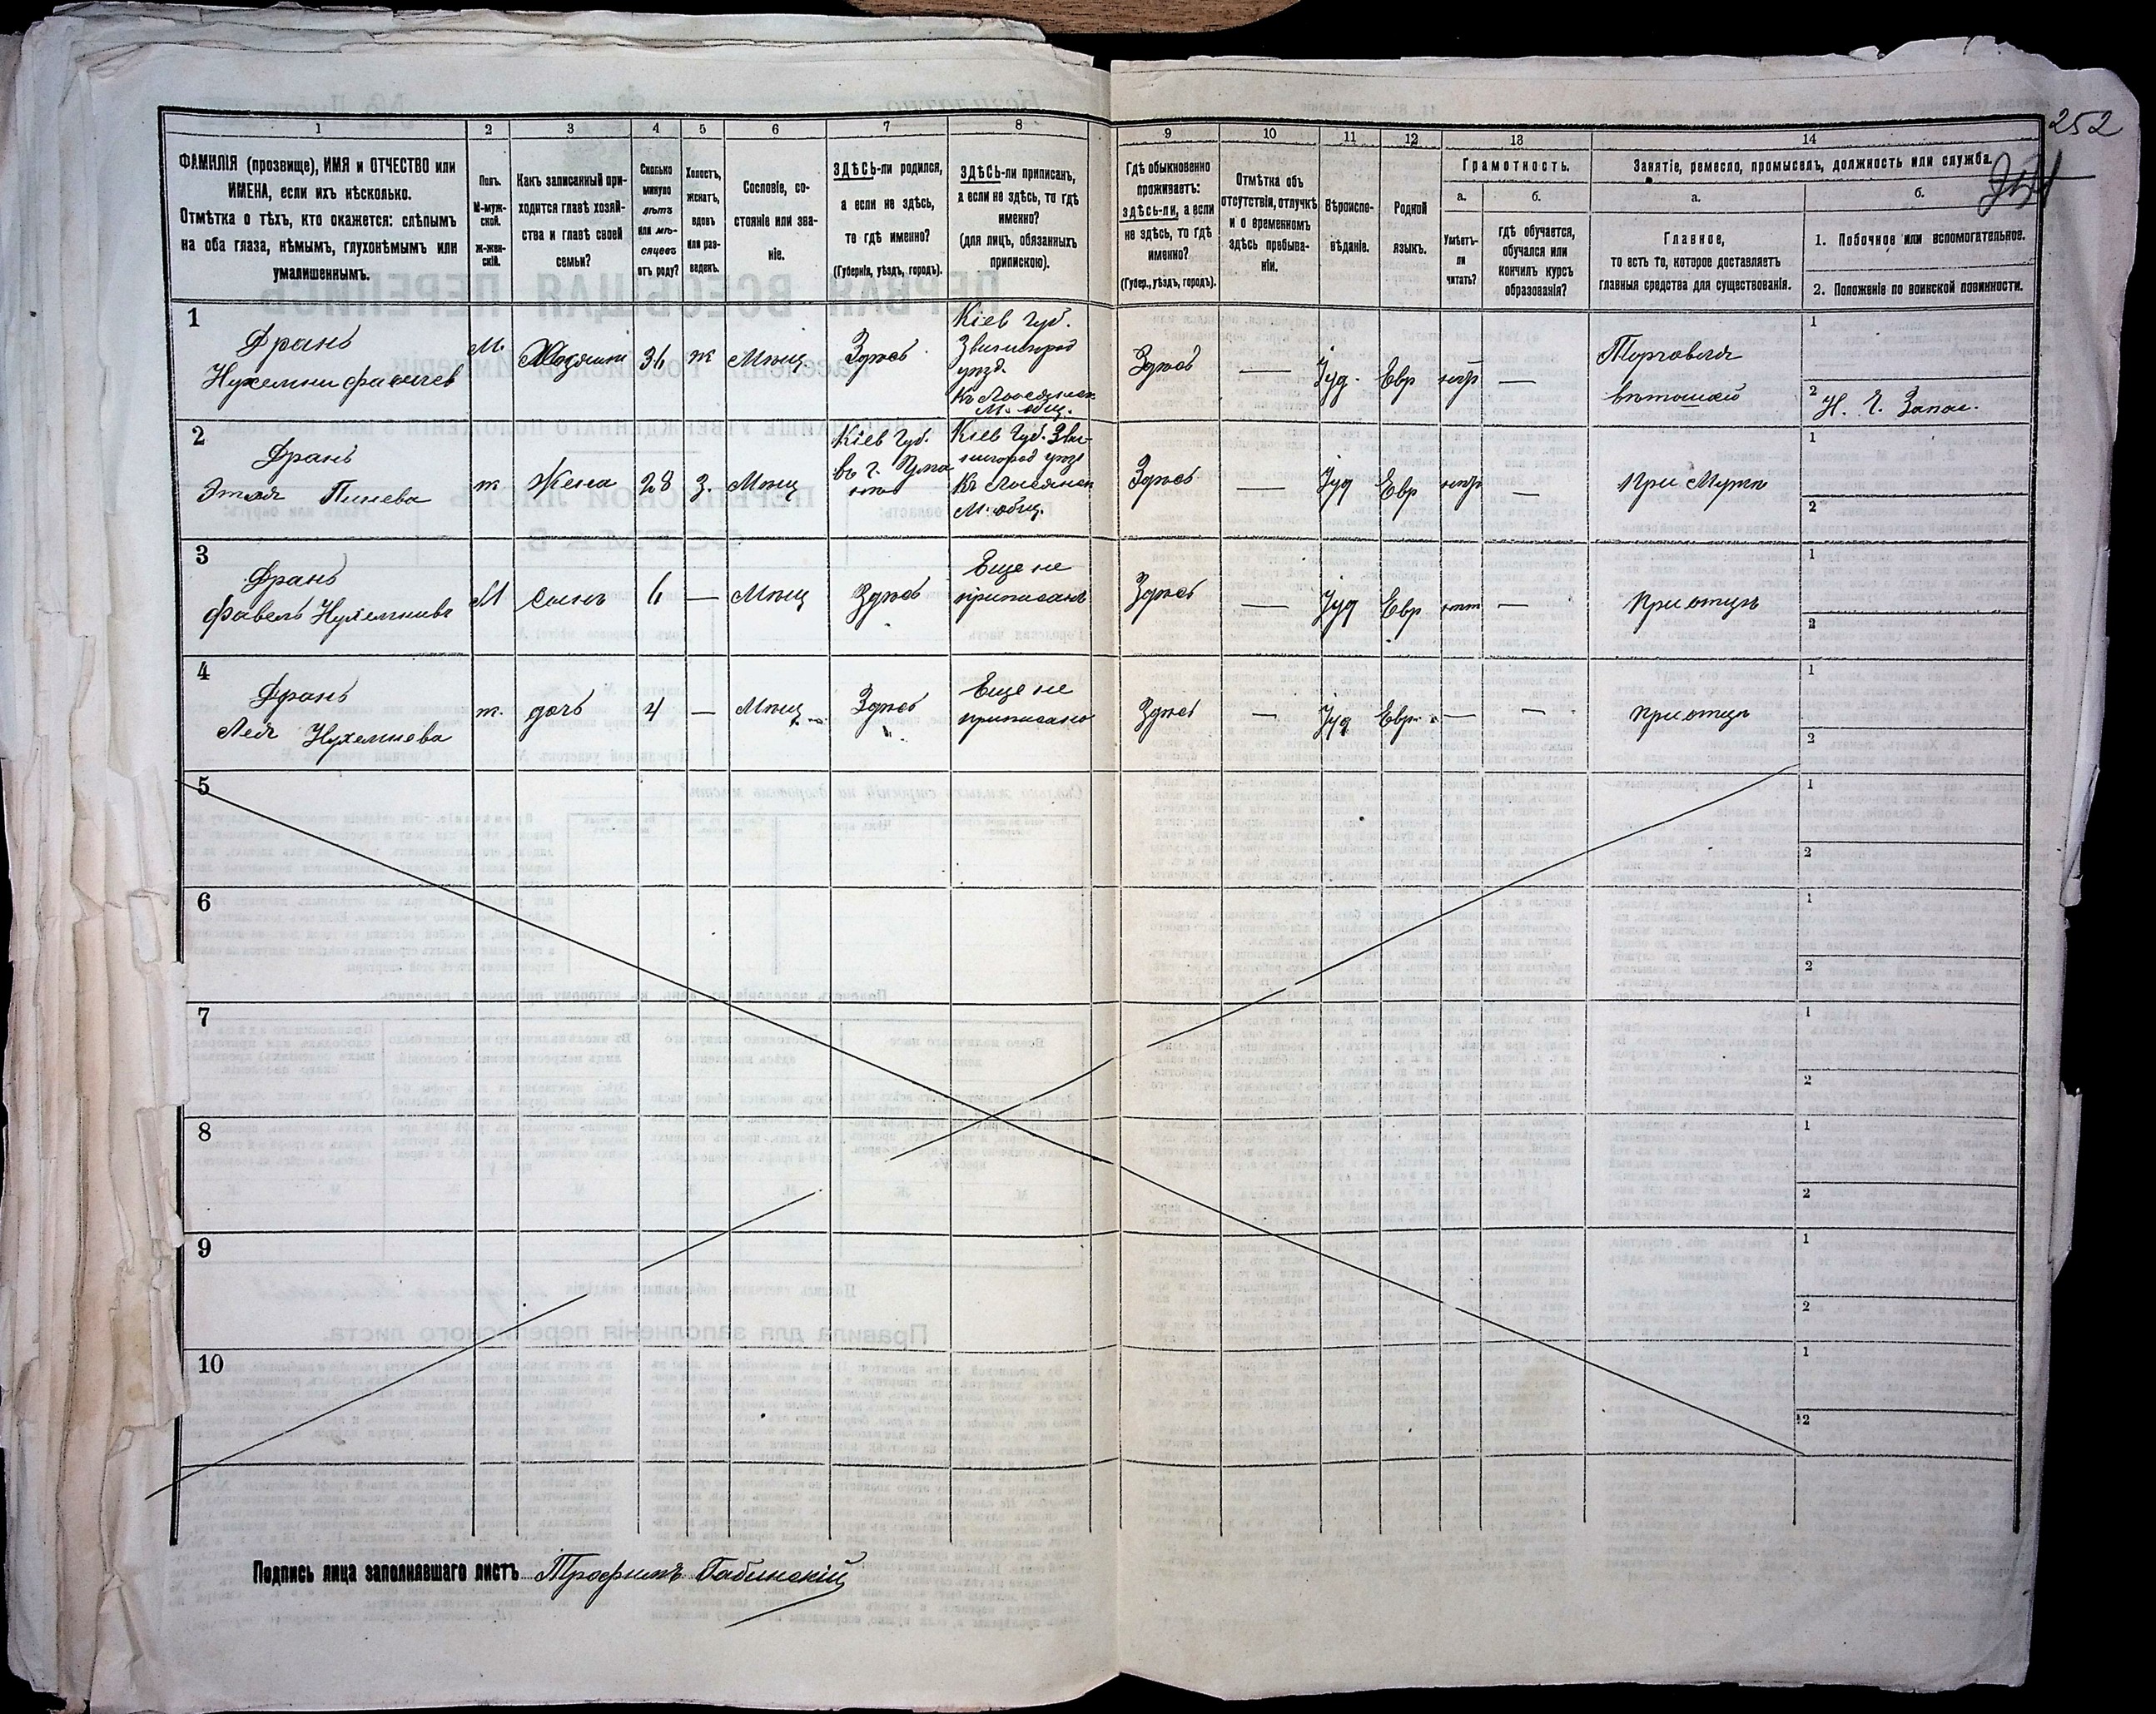 252
1 2 3 4 5 6 7 8 9 10 11 12 13 14
ФАМИЛІЯ (прозвище), ИМЯ и ОТЧЕСТВО или
ИМЕНА, если ихъ нѣсколько.
Отмѣтка о тѣхъ, кто окажется: слѣпымъ
на оба глаза, нѣмымъ, глухонѣмымъ или
умалишеннымъ.
Полъ.
М-муж-
ской.
ж-жен-
скій.
Какъ записанный при-
ходится главѣ хозяй-
ства и главѣ своей
семьи?
Сколько
минуло
лѣтъ
или мѣ-
сяцевъ
отъ роду?
Холостъ,
женатъ,
вдовъ
или раз-
веденъ.
Сословіе, со-
стояніе или зва-
ніе.
ЗДѢСЬ-ли родился,
а если не здѣсь,
то гдѣ именно?
(Губернія, уѣздъ, городъ).
ЗДѢСЬ-ли приписанъ,
а если не здѣсь, то гдѣ
именно?
(для лицъ, обязанныхъ
припискою).
Гдѣ обыкновенно
проживаетъ:
здѣсь-ли, а если
не здѣсь, то гдѣ
именно?
(Губер., уѣздъ, городъ).
Отмѣтка объ
отсутствіи, отлучкѣ
и о временномъ
здѣсь пребыва-
ніи.
Вѣроиспо-
вѣданіе.
Родной
языкъ.
Грамотность.
а.
Умѣетъ-
ли
читать?
б.
гдѣ обучается,
обучался или
кончилъ курсъ
образованія?
Занятіе, ремесло, промыселъ, должность или служба.
а.
Главное,
то есть то, которое доставляетъ
главныя средства для существованія.
б.
1. Побочное или вспомогательное.
2. Положеніе по воинской повинности.
1
Франь
М. Хозяинъ 36 ж Мѣщ Здѣсь
Кіев Губ.
Звенигород
уѣзд.
М. общ.
Здѣсь — Іуд. Евр —
Торговля
1
2
2
Франь
Пинева
ж Жена 28 з. Мѣщ
Кіев Губ.
Кіев Губ. Зве-
нигород уѣзд
М. общ.
Здѣсь — Іуд Евр —
При Мужѣ
1
2
3
Франь
М Сынъ 6 — Мѣщ Здѣсь
Еще не
приписанъ
Здѣсь — Іуд Евр нѣт —
При отцѣ
1
2
4
Франь
Лея Нухемнева
ж. дочь 4 — Мѣщ Здѣсь
Еще не
приписана
Здѣсь — Іуд Евр. — —
При отцѣ
1
2
5
1
2
6
1
2
7
1
2
8
1
2
9
1
2
10
1
2
Подпись лица заполнявшаго листъ Трофимъ Габинскій